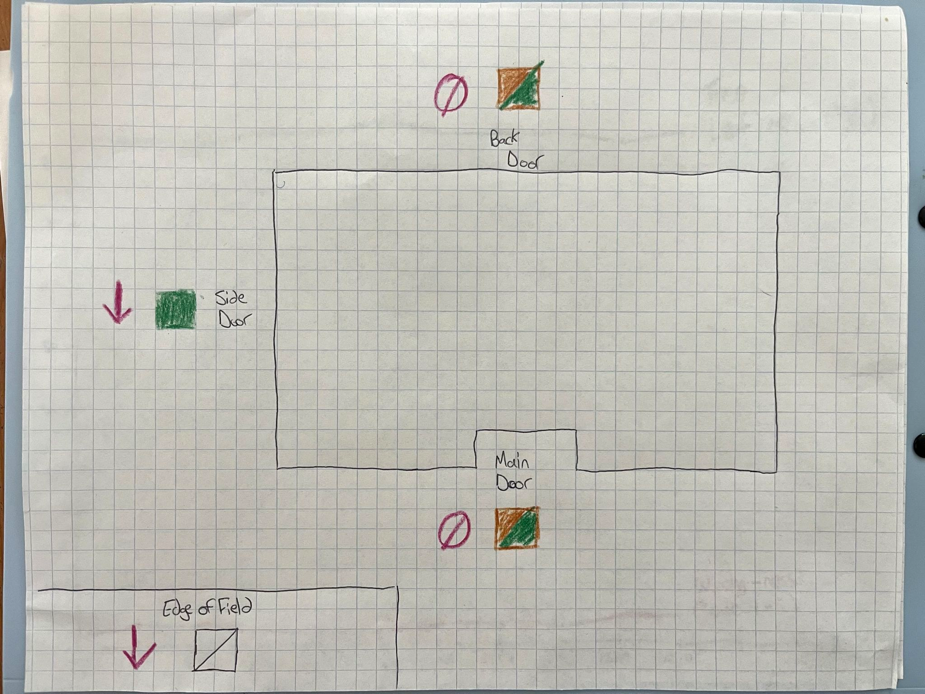 Back
Door
Side
Door
Main
Door
Edge of Field